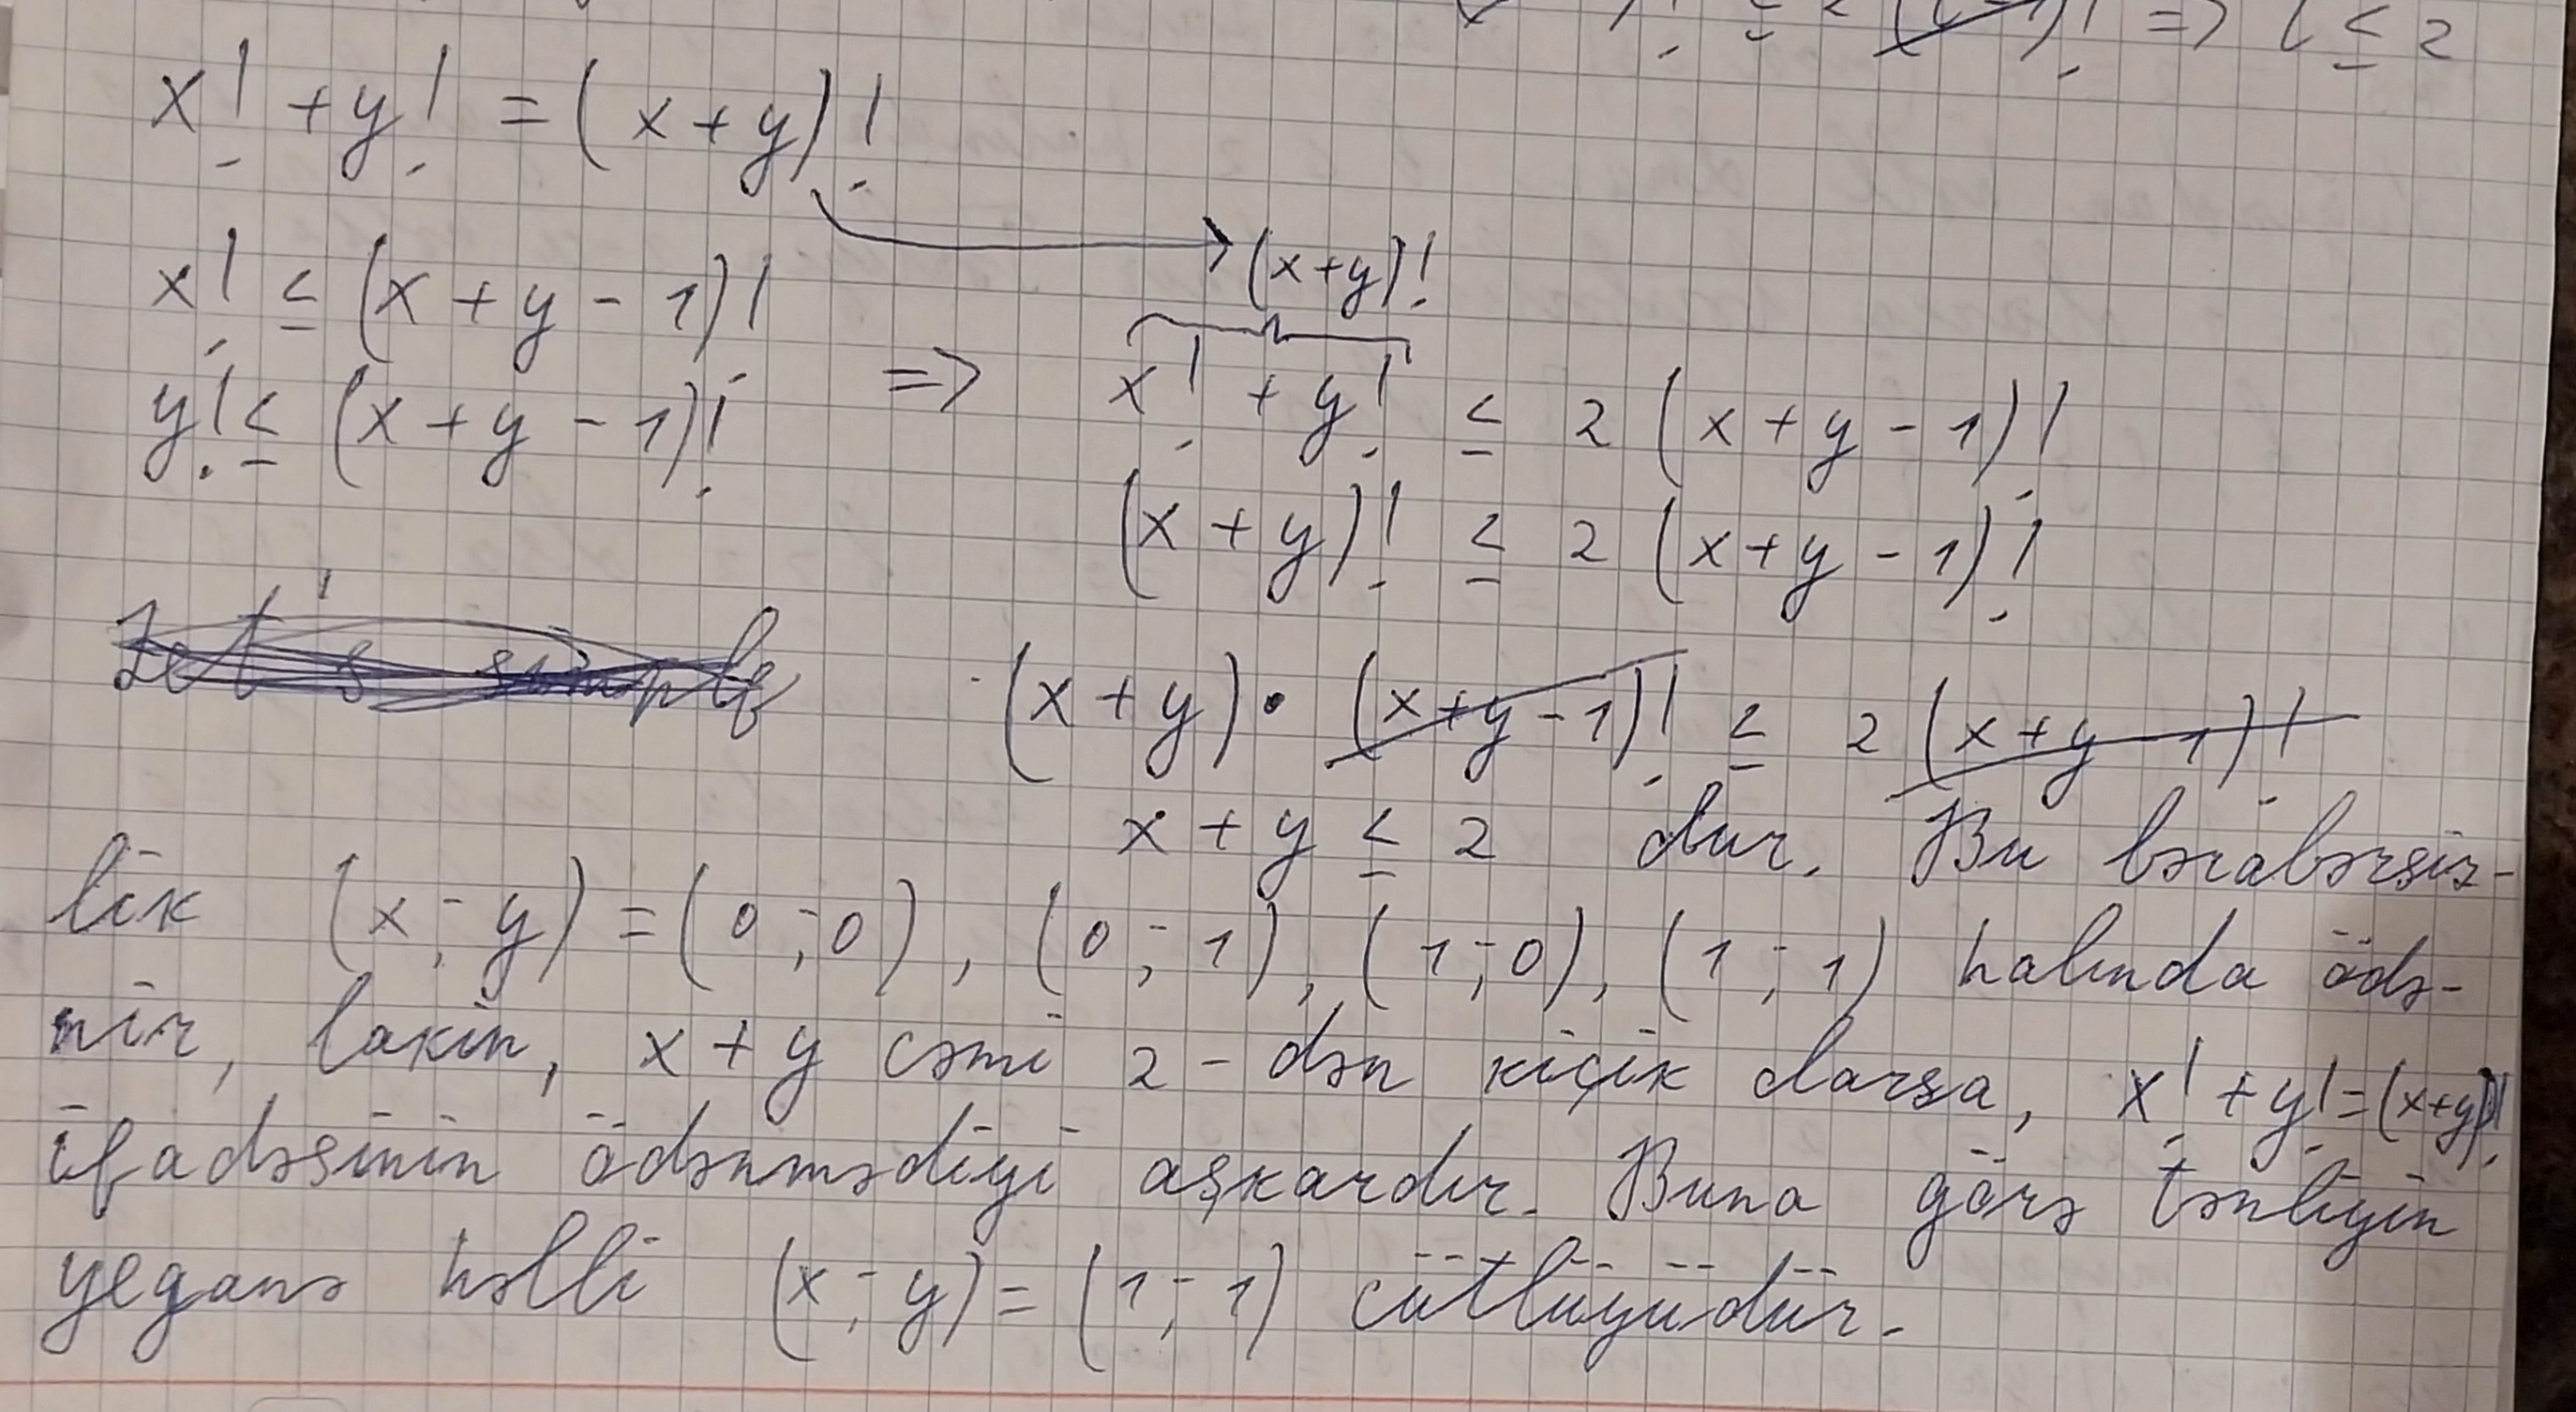 (l-1)! => l ≤ 2
x! + y! = (x+y)!
(x+y)!
x! ≤ (x+y-1)!
y! ≤ (x+y-1)! => x! + y! ≤ 2(x+y-1)!
(x+y)! ≤ 2(x+y-1)!
Let's simple
(x+y)·(x+y-1)! ≤ 2(x+y-1)!
x+y ≤ 2 dur. Bu bərabərsiz-
lik (x;y)=(0;0), (0;1), (1;0), (1;1) halında ödə-
nir, lakin, x+y cəmi 2-dən kiçik olarsa, x!+y!=(x+y)!
ifadəsinin ödənmədiyi aşkardır. Buna görə tənliyin
yeganə həlli (x;y)=(1;1) cütlüyüdür.